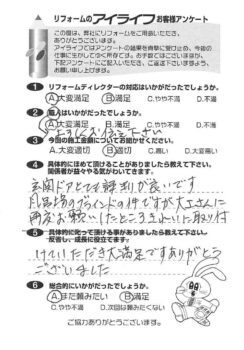 リフォームのアイライフお客様アンケート
この度は、弊社にリフォームをご用命いただき、
ありがとうございます。
アイライフではアンケートの結果を真摯に受け止め、今後の
仕事に生かしてゆく所存です。お手数ではございますが、
下記アンケートにご記入いただき、ご返送下さいますよう、
お願い申し上げます。
1 リフォームディレクターの対応はいかがだったでしょうか。
A.大変満足 B.満足 C.やや不満 D.不満
2 職人はいかがだったでしょうか。
A.大変満足 B.満足 C.やや不満 D.不満
よろしくお伝え下さい
3 今回の施工金額についてお聞かせください。
A.大変適切 B.適切 C.高い D.大変高い
4 具体的にほめて頂けることがありましたら教えて下さい。
関係者が益々やる気がわいてきます。
玄関ドアとても評判が良いです
風呂場のブラインドの件ですが大工さんに
再度お願いしたところきれいに取り付
5 具体的に叱って頂ける事がありましたら教えて下さい。
反省し、成長に役立てます。
けていただき大満足ですありがとう
ございました
6 総合的にいかがだったでしょうか。
A.また頼みたい B.満足
C.やや不満 D.次回は頼みたくない
ご協力ありがとうございます。